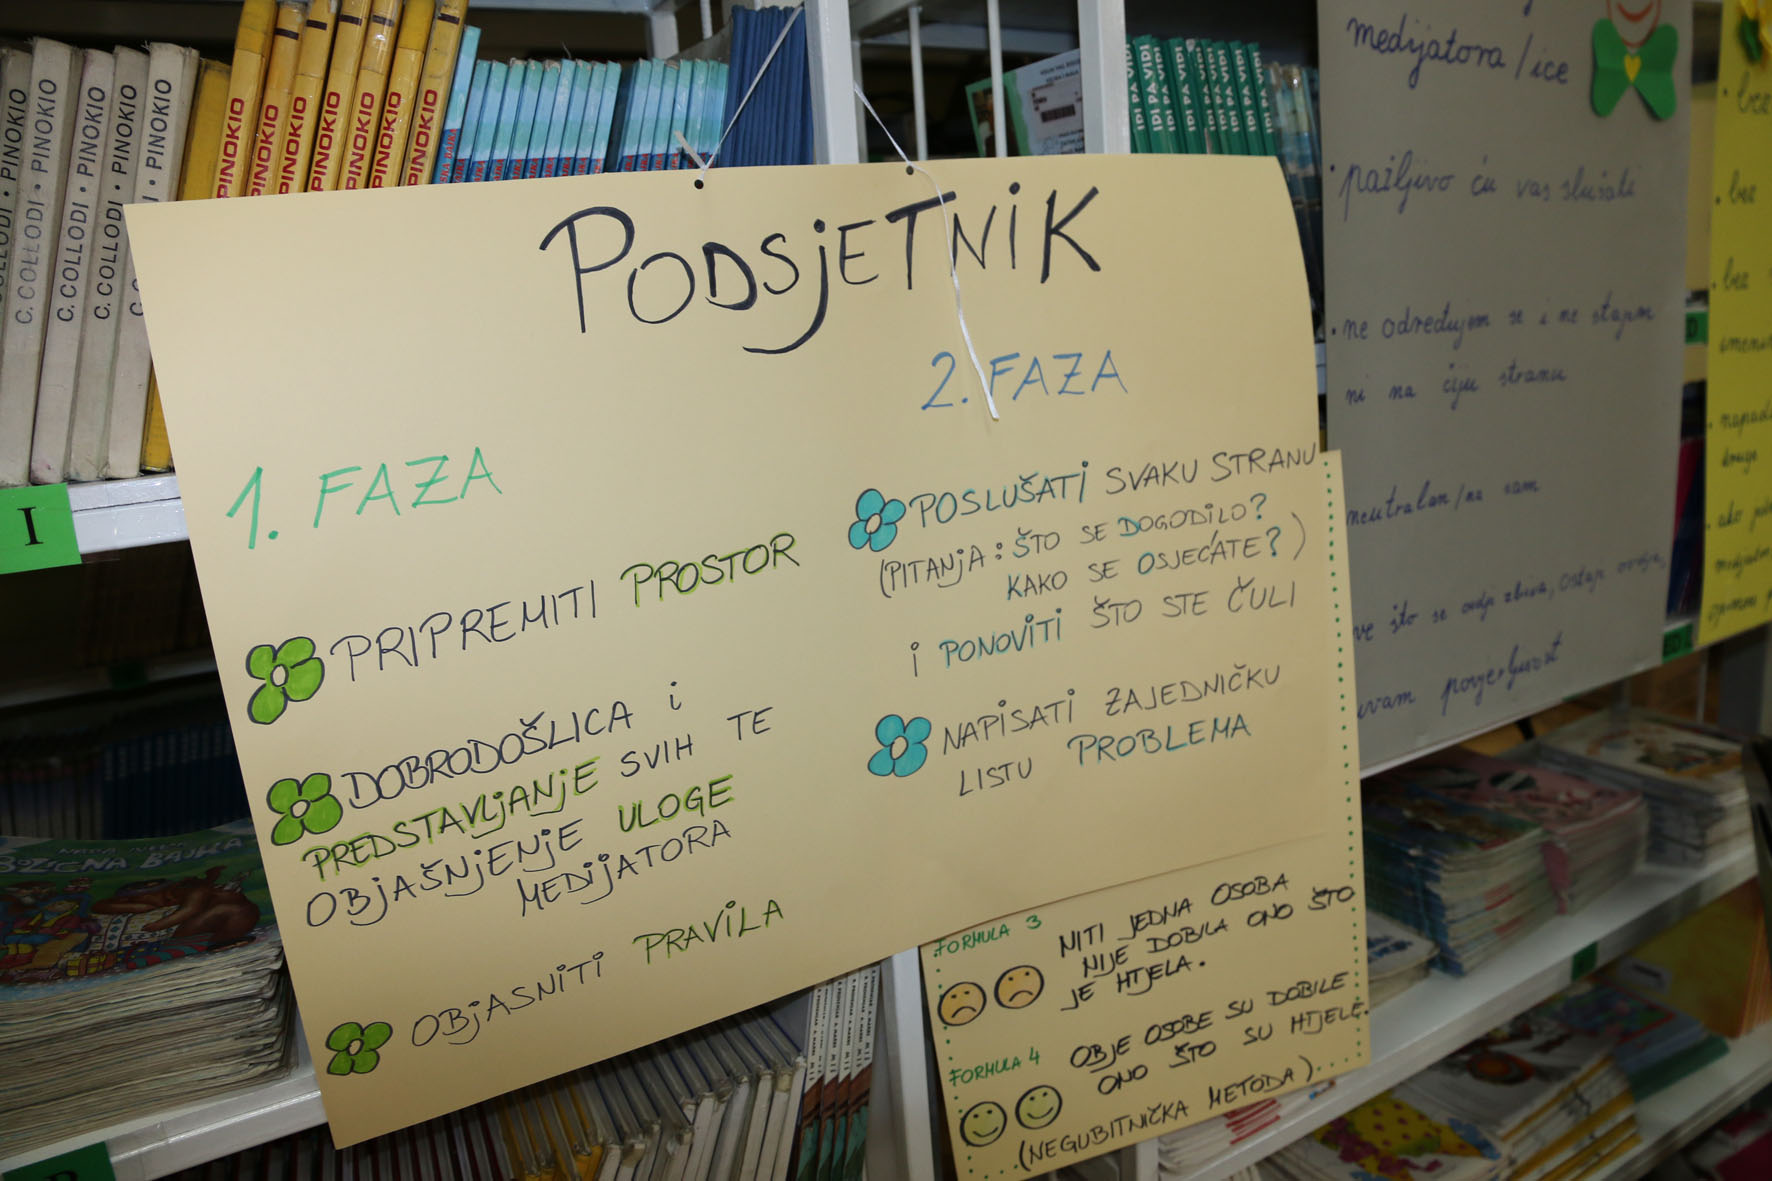 C. COLLODI • PINOKIO
C. COLLODI • PINOKIO
C. COLLODI • PINOKIO
C. COLLODI • PINOKIO
PINOKIO
PINOKIO
PINOKIO
PINOKIO
PINOKIO
PINOKIO
PINOKIO
IDI PA VIDI
IDI PA VIDI
IDI PA VIDI
IDI PA VIDI
IDI PA VIDI
I
PODSJETNIK
1. FAZA
PRIPREMITI PROSTOR
DOBRODOŠLICA i
PREDSTAVLJANJE SVIH TE
OBJAŠNJENJE ULOGE
MEDIJATORA
OBJASNITI PRAVILA
2. FAZA
POSLUŠATI SVAKU STRANU
(PITANJA: ŠTO SE DOGODILO?
KAKO SE OSJEĆATE?)
i PONOVITI ŠTO STE ČULI
NAPISATI ZAJEDNIČKU
LISTU PROBLEMA
FORMULA 3
NITI JEDNA OSOBA
NIJE DOBILA ONO ŠTO
JE HTJELA.
FORMULA 4
OBJE OSOBE SU DOBILE
ONO ŠTO SU HTJELE.
(NEGUBITNIČKA METODA)
medijatora/ice
• pažljivo ću vas slušati
• ne određujem se i ne stajem
ni na čiju stranu
neutralan/na sam
što se ovdje zbiva, ostaje ovdje,
povjerljivost
• bez
• bez
BOŽIĆNA BAJKA